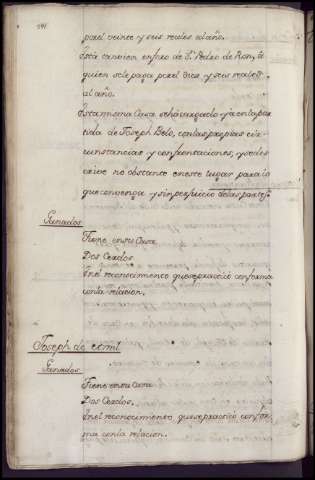 por el veinte y seis reales al año.
Está tambien en foro de Sn. Pedro de Ron, á
quien se le paga por el diez y seis reales
al año.
Esta misma Casa se há cargado ya en la par
tida de Joseph Belo, con las propias cir-
cunstancias y confrontaciones, y se des
crive no obstante en este lugar para lo
que convenga y sin perjuicio de las partes.
Ganados
Tiene en su Casa
Dos Cerdos
En el reconocimiento que se practicó conforma
con la relacion.
Joseph de
Ganados
Tiene en su Casa
Dos Cerdos.
En el reconocimiento que se practicó confor
ma con la relacion.